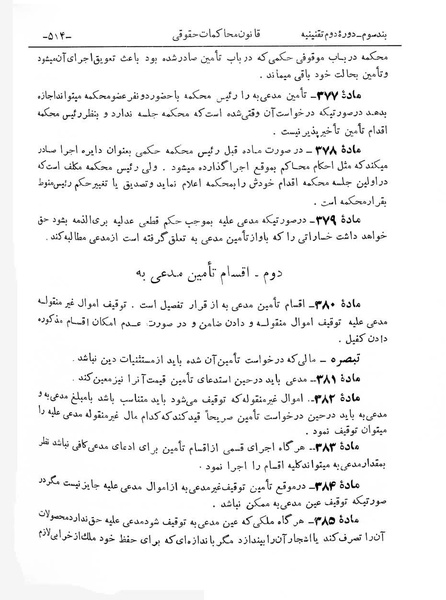 بند سوم ـ دورهٔ دوم تقنینیه قانون محاکمات حقوقی ـ ۵۱۴ ـ
محکمه در باب موقوفی حکمی که در باب تأمین صادر شده بود باعث تعویق اجرای آن میشود
و تأمین بحالت خود باقی میماند .
مادهٔ ۳۷۷ـ تأمین مدعی به را رئیس محکمه با حضور دو نفر عضو محکمه میتواند اجازه
بدهد در صورتیکه درخواست آن وقتی شده است که محکمه جلسه ندارد و بنظر رئیس محکمه
اقدام تأمین تأخیر پذیر نیست .
مادهٔ ۳۷۸ـ در صورت ماده قبل رئیس محکمه حکمی بعنوان دایره اجرا صادر
میکند که مثل احکام محاکم بموقع اجرا گذارده میشود . ولی رئیس محکمه مکلف است که
در اولین جلسه محکمه اقدام خودش را بمحکمه اعلام نماید و تصدیق یا تغییر حکم رئیس منوط
بقرار محکمه است .
مادهٔ ۳۷۹ـ در صورتیکه مدعی علیه بموجب حکم قطعی عدلیه بری الذمه بشود حق
خواهد داشت خساراتی را که باو از تأمین مدعی به تعلق گرفته است از مدعی مطالبه کند .
دوم ـ اقسام تأمین مدعی به
مادهٔ ۳۸۰ـ اقسام تأمین مدعی به از قرار تفصیل است . توقیف اموال غیر منقوله
مدعی علیه توقیف اموال منقوله و دادن ضامن و در صورت عدم امکان اقسام مذکوره
دادن کفیل .
تبصره ـ مالی که درخواست تأمین آن شده باید از مستثنیات دین نباشد .
مادهٔ ۳۸۱ـ مدعی باید در حین استدعای تأمین قیمت آنرا نیز معین کند .
مادهٔ ۳۸۲ـ اموال غیر منقوله که توقیف می‌شود باید متناسب باشد با مبلغ مدعی به و
مدعی به باید در حین درخواست تأمین صریحاً قید کند که کدام مال غیر منقوله مدعی علیه را
میتوان توقیف نمود .
مادهٔ ۳۸۳ـ هر گاه اجرای قسمی از اقسام تأمین برای ادعای مدعی کافی نباشد نظر
بمقدار مدعی به میتواند کلیه اقسام را اجرا نمود .
مادهٔ ۳۸۴ـ در موقع تأمین توقیف غیر مدعی به از اموال مدعی علیه جایز نیست مگر در
صورتیکه توقیف عین مدعی به ممکن نباشد .
مادهٔ ۳۸۵ـ هر گاه ملکی که عین مدعی به توقیف شود مدعی علیه حق ندارد محصولات
آن را تصرف کند یا اشجار آن را بیندازد مگر باندازه‌ای که برای حفظ خود ملک از خرابی لازم